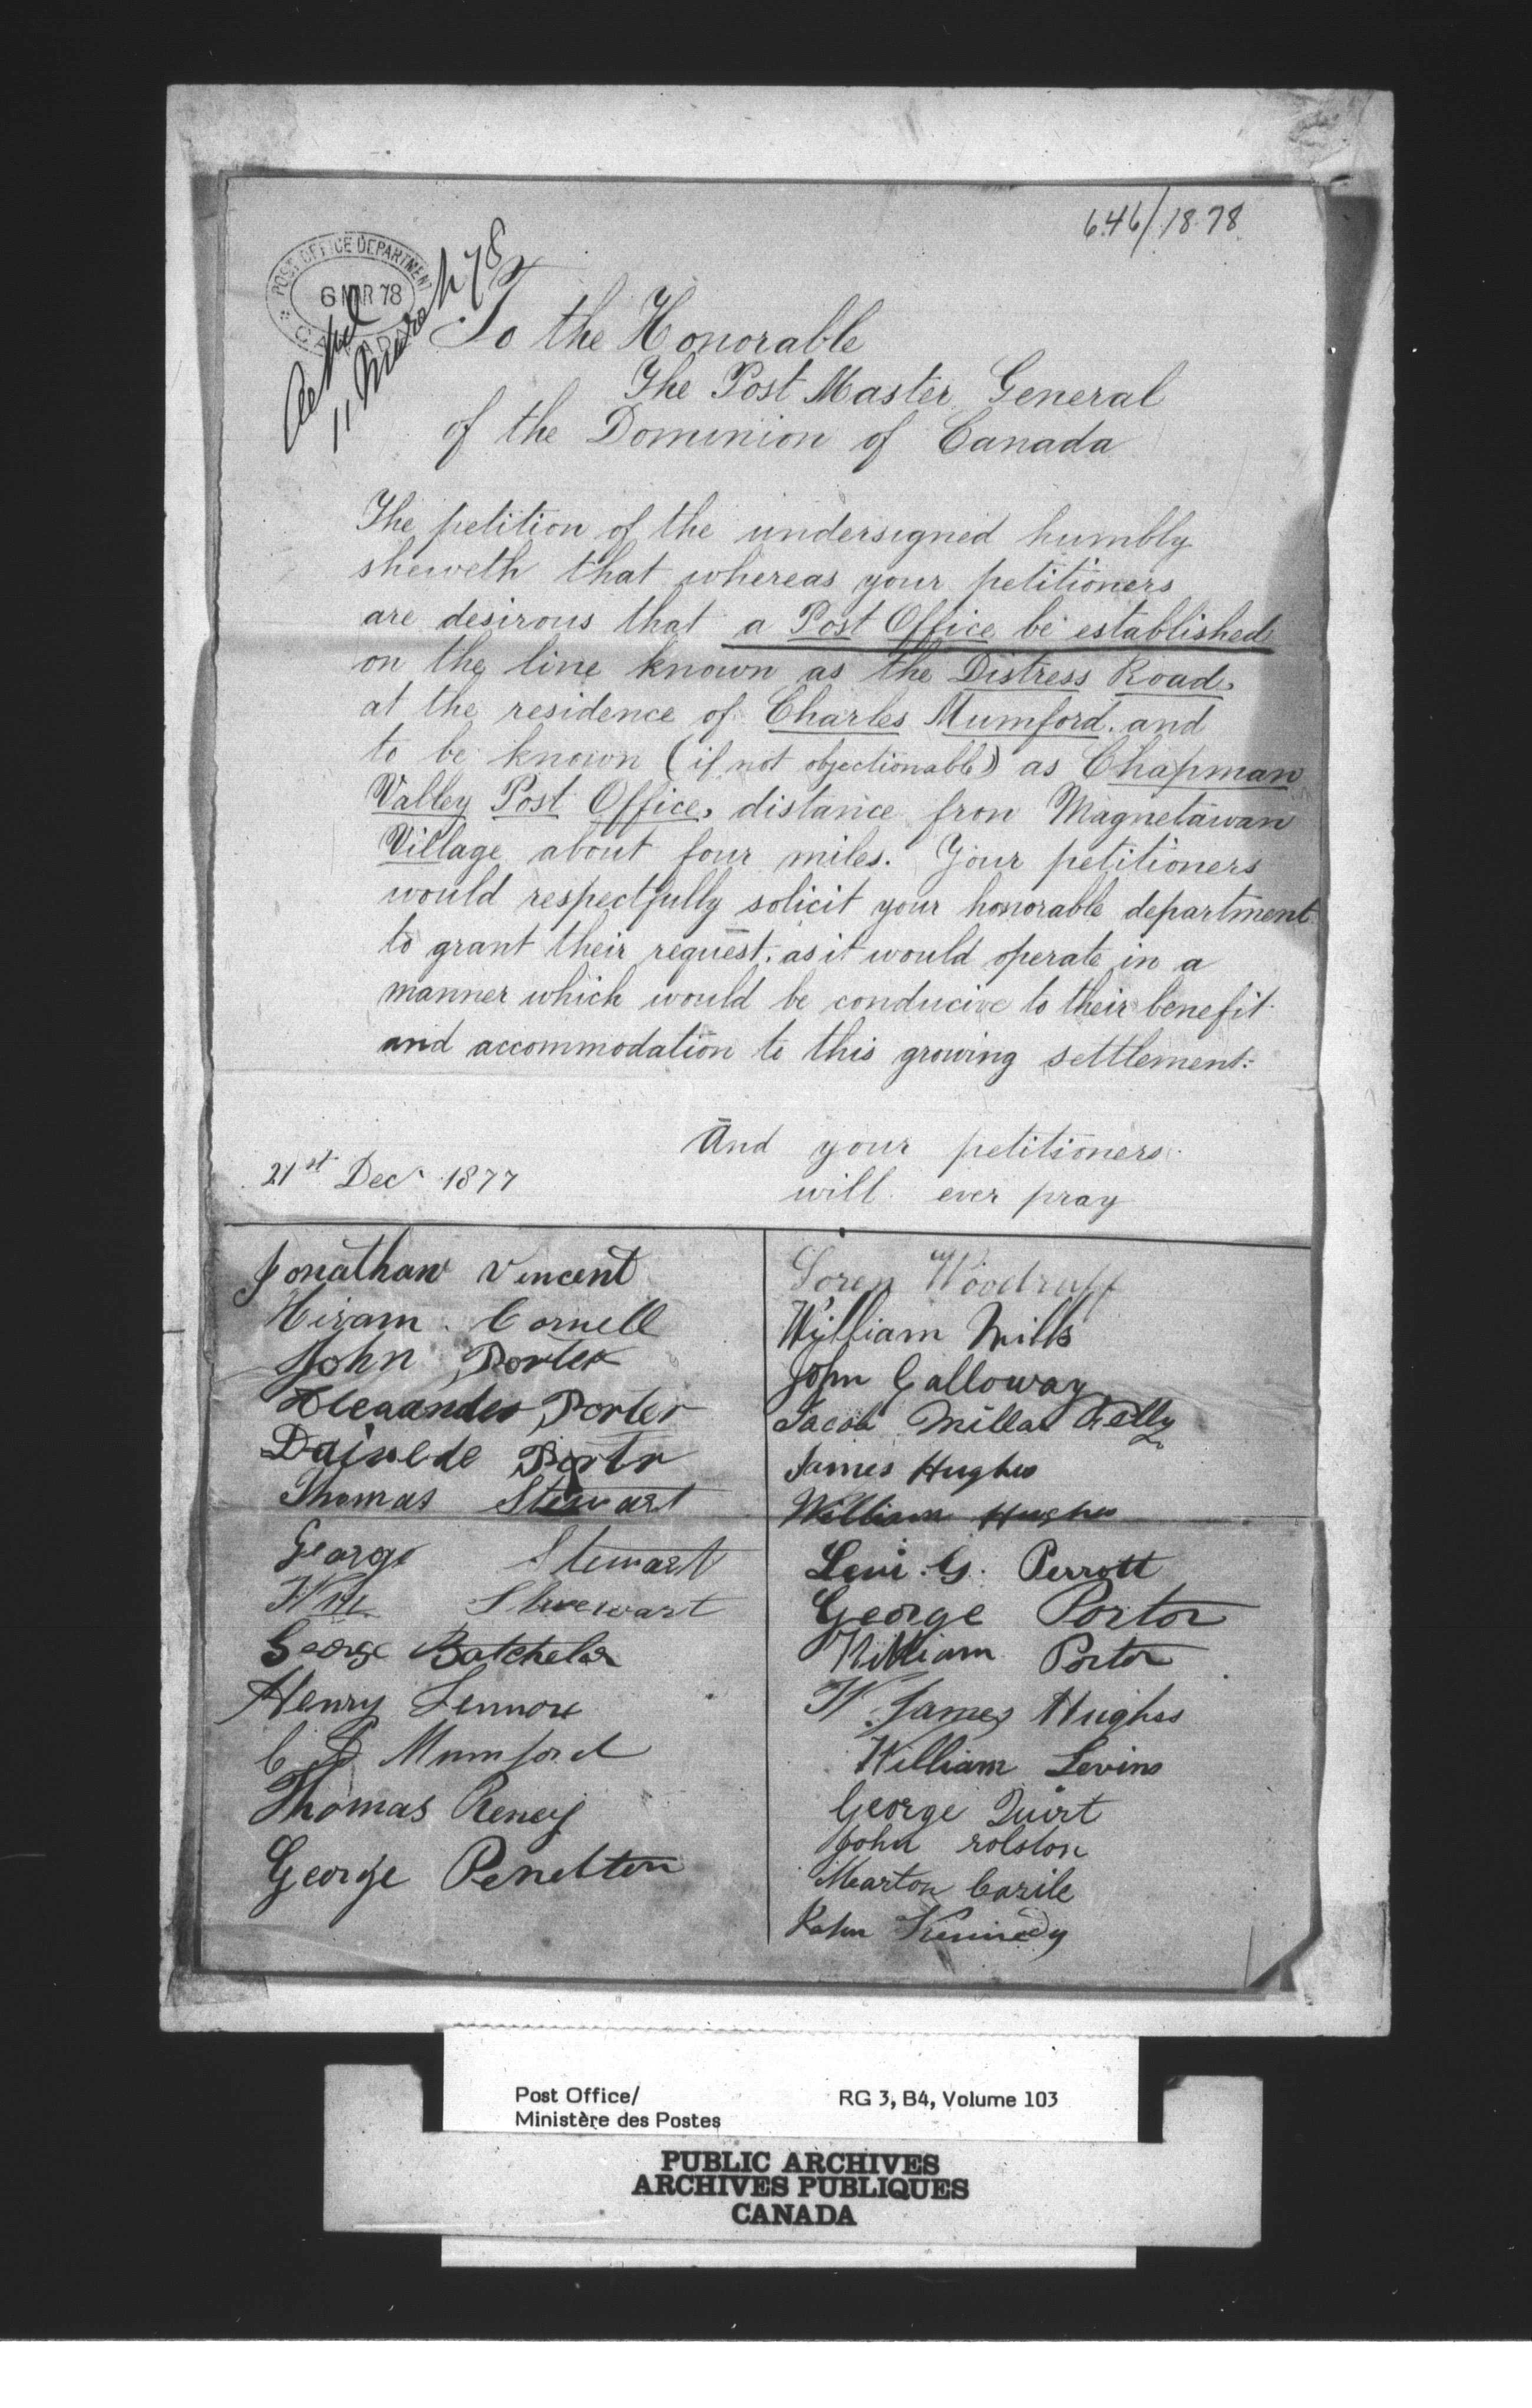 646/1878
POST OFFICE DEPARTMENT
6 MAR 78
CANADA
11 March 78
To the Honorable
The Post Master General
of the Dominion of Canada
The petition of the undersigned humbly
sheweth that whereas your petitioners
are desirous that a Post Office be established
on the line known as the Distress Road,
at the residence of Charles Mumford. and
to be known (if not objectionable) as Chapman
Valley Post Office, distance from Magnetawan
Village about four miles. Your petitioners
would respectfully solicit your honorable department
to grant their request, as it would operate in a
manner which would be conducive to their benefit
and accommodation to this growing settlement:
And your petitioners
will ever pray
21st Decr 1877
Jonathan Vincent
Hiram Cornell
John Porter
Alexander Porter
Porter
Thomas Stewart
George Stewart
Wm Stewart
George Batchelor
Henry Lennox
C Mumford
Thomas
George Penelton
Loren Woodruff
William Mills
John Galloway
Jacob Millar Kelly
James Hughes
William Hughes
Levi G. Perrott
George Portor
William Portor
W James Hughes
William Levins
George Quirt
John rolston
Marton Carile
John Kennedy
Post Office/
Ministère des Postes
RG 3, B4, Volume 103
PUBLIC ARCHIVES
ARCHIVES PUBLIQUES
CANADA